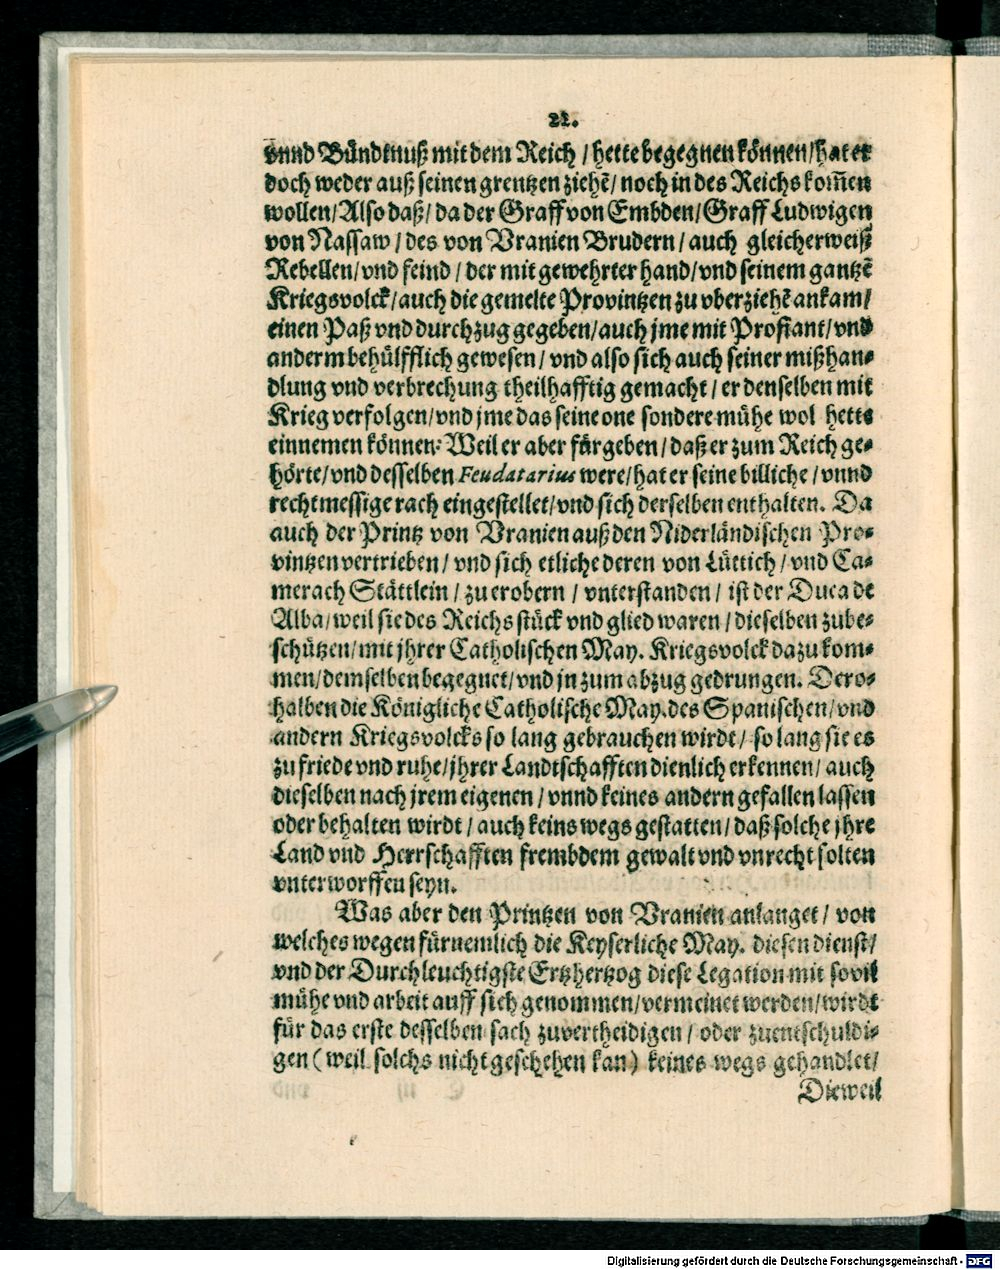 22.
vnnd Bündtnuß mit dem Reich / hette begegnen können/hat er
doch weder auß seinen grentzen ziehē/ noch in des Reichs kom̄en
wollen/Also daß/ da der Graff von Embden/Graff Ludwigen
von Nassaw / des von Vranien Brudern/ auch gleicherweiß
Rebellen/vnd feind / der mit gewehrter hand/vnd seinem gantzē
Kriegsvolck/auch die gemelte Provintzen zu vberziehē ankam/
einen Paß vnd durchzug gegeben/auch jme mit Profiant/vnd
anderm behülfflich gewesen / vnd also sich auch seiner mißhan-
dlung vnd verbrechung theilhafftig gemacht / er denselben mit
Krieg verfolgen/vnd jme das seine one sondere mühe wol hette
einnemen können: Weil er aber fürgeben / daß er zum Reich ge-
hörte/vnd desselben Feudatarius were/hat er seine billiche / vnnd
rechtmessige rach eingestellet/vnd sich derselben enthalten. Da
auch der Printz von Vranien auß den Niderländischen Pro-
vintzen vertrieben/ vnd sich etliche deren von Lüttich / vnd Ca-
merach Stättlein / zu erobern / vnterstanden / ist der Duca de
Alba/weil sie des Reichs stück vnd glied waren / dieselben zube-
schützen/mit jhrer Catholischen May. Kriegsvolck dazu kom-
men/demselben begegnet/vnd jn zum abzug gedrungen. Dero-
halben die Königliche Catholische May. des Spanischen/vnd
andern Kriegsvolcks so lang gebrauchen wirdt/ so lang sie es
zu friede vnd ruhe/jhrer Landtschafften dienlich erkennen/ auch
dieselben nach jrem eigenen / vnnd keines andern gefallen lassen
oder behalten wirdt / auch keins wegs gestatten/ daß solche jhre
Land vnd Herrschafften frembdem gewalt vnd vnrecht solten
vnterworffen seyn.
Was aber den Printzen von Vranien anlanget / von
welches wegen fürnemlich die Keyserliche May. diesen dienst/
vnd der Durchleuchtigste Ertzhertzog diese Legation mit sovil
mühe vnd arbeit auff sich genommen/vermeinet werden/wirdt
für das erste desselben sach zuvertheidigen / oder zuentschuldi-
gen ( weil solchs nicht geschehen kan) keines wegs gehandlet/
Dieweil
Digitalisierung gefördert durch die Deutsche Forschungsgemeinschaft - DFG